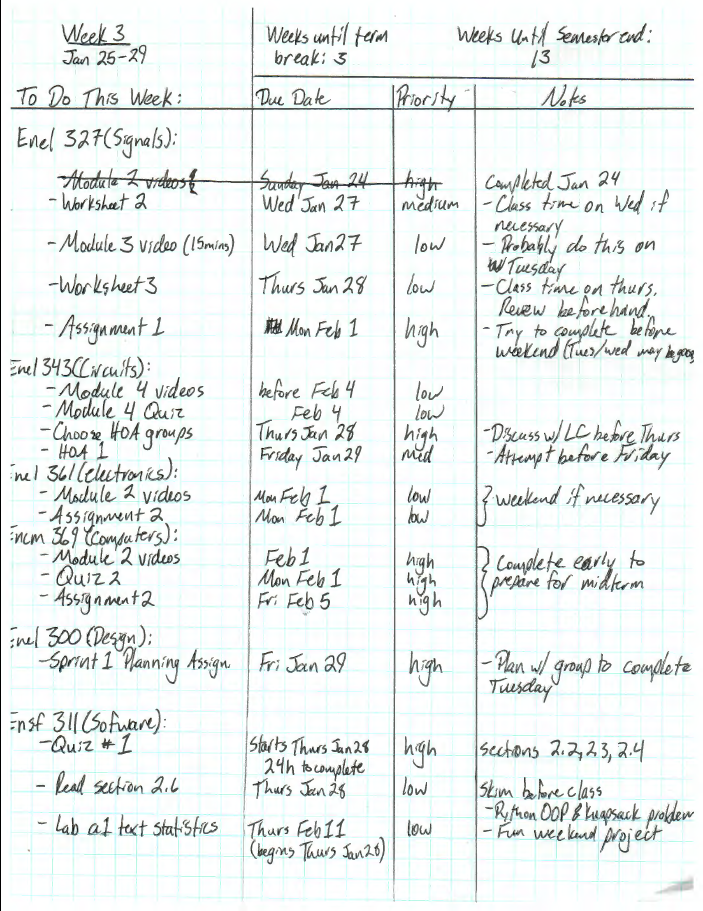 Week 3 Weeks until term Weeks Until Semester end:
Jan 25-29 break: 3 13
To Do This Week: Due Date Priority Notes
Enel 327(Signals):
Module 2 videos Sunday Jan 24 high Completed Jan 24
- Worksheet 2 Wed Jan 27 medium - Class time on Wed if
necessary
- Module 3 video (15mins) Wed Jan 27 low - Probably do this on
Tuesday
- Worksheet 3 Thurs Jan 28 low - Class time on thurs.
Review beforehand.
- Assignment 1 Mon Feb 1 high - Try to complete before
weekend (Tues/wed may be good
Enel 343(Circuits):
- Module 4 videos before Feb 4 low
- Module 4 Quiz Feb 4 low
- Choose HOA groups Thurs Jan 28 high - Discuss w/ LC before Thurs
- HOA 1 Friday Jan 29 med - Attempt before Friday
Enel 361(electronics):
- Module 2 videos Mon Feb 1 low } weekend if necessary
- Assignment 2 Mon Feb 1 low
Encm 369(Computers):
- Module 2 videos Feb 1 high } Complete early to
- Quiz 2 Mon Feb 1 high prepare for midterm
- Assignment 2 Fri Feb 5 high
Enel 300 (Design):
- Sprint 1 Planning Assign. Fri Jan 29 high - Plan w/ group to complete
Tuesday
Ensf 311(Sofware):
- Quiz #1 Starts Thurs Jan 28 high sections 2.2, 2.3, 2.4
24h to complete
- Read section 2.6 Thurs Jan 28 low Skim before class
- Python OOP & knapsack problem
- Lab a1 text statistics Thurs Feb 11 low - Fun weekend project
(begins Thurs Jan 28)